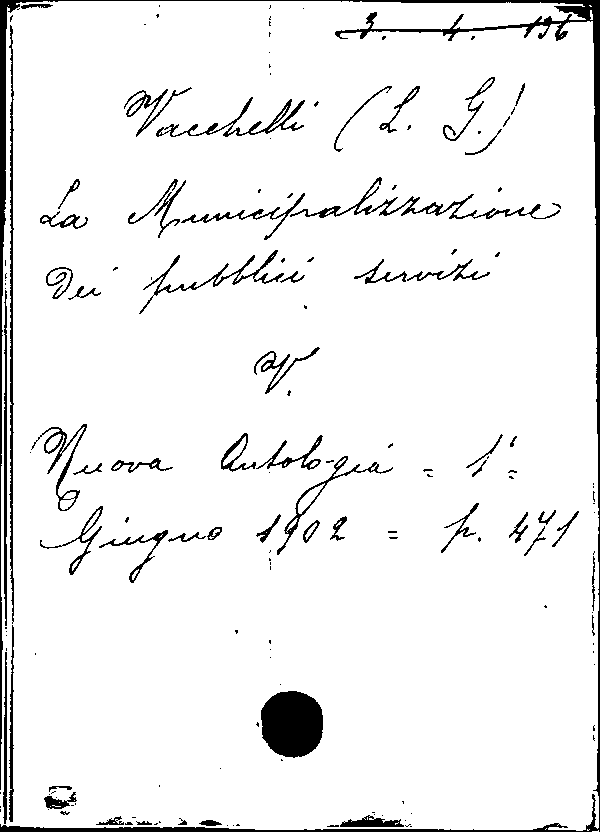 3. 4. 196
Vacchelli (L. G.)
La Municipalizzazione
dei pubblici servizi
V.
Nuova Antologia = 1° =
Giugno 1902 = p. 471